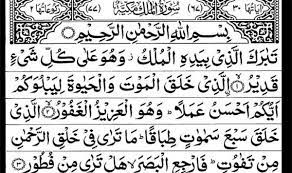 اٰیَاتُهَا ٣٠ (٦٧) سُوْرَةُ الْمُلْكِ مَكِّيَّةٌ (٧٧) رُكُوْعَاتُهَا
بِسْمِ اللّٰهِ الرَّحْمٰنِ الرَّحِيْمِ
تَبٰرَكَ الَّذِيْ بِيَدِهِ الْمُلْكُ ؗ وَهُوَ عَلٰى كُلِّ شَيْءٍ
قَدِيْرُۨ ۙ‏﴿١﴾ الَّذِيْ خَلَقَ الْمَوْتَ وَالْحَيٰوةَ لِيَبْلُوَكُمْ
اَيُّكُمْ اَحْسَنُ عَمَلًا ؕ وَهُوَ الْعَزِيْزُ الْغَفُوْرُ ۙ﴿٢﴾ الَّذِيْ
خَلَقَ سَبْعَ سَمٰوٰتٍ طِبَاقًا ؕ مَا تَرٰى فِيْ خَلْقِ الرَّحْمٰنِ
مِنْ تَفٰوُتٍ ؕ فَارْجِعِ الْبَصَرَ ۙ هَلْ تَرٰى مِنْ فُطُوْرٍ ﴿٣﴾